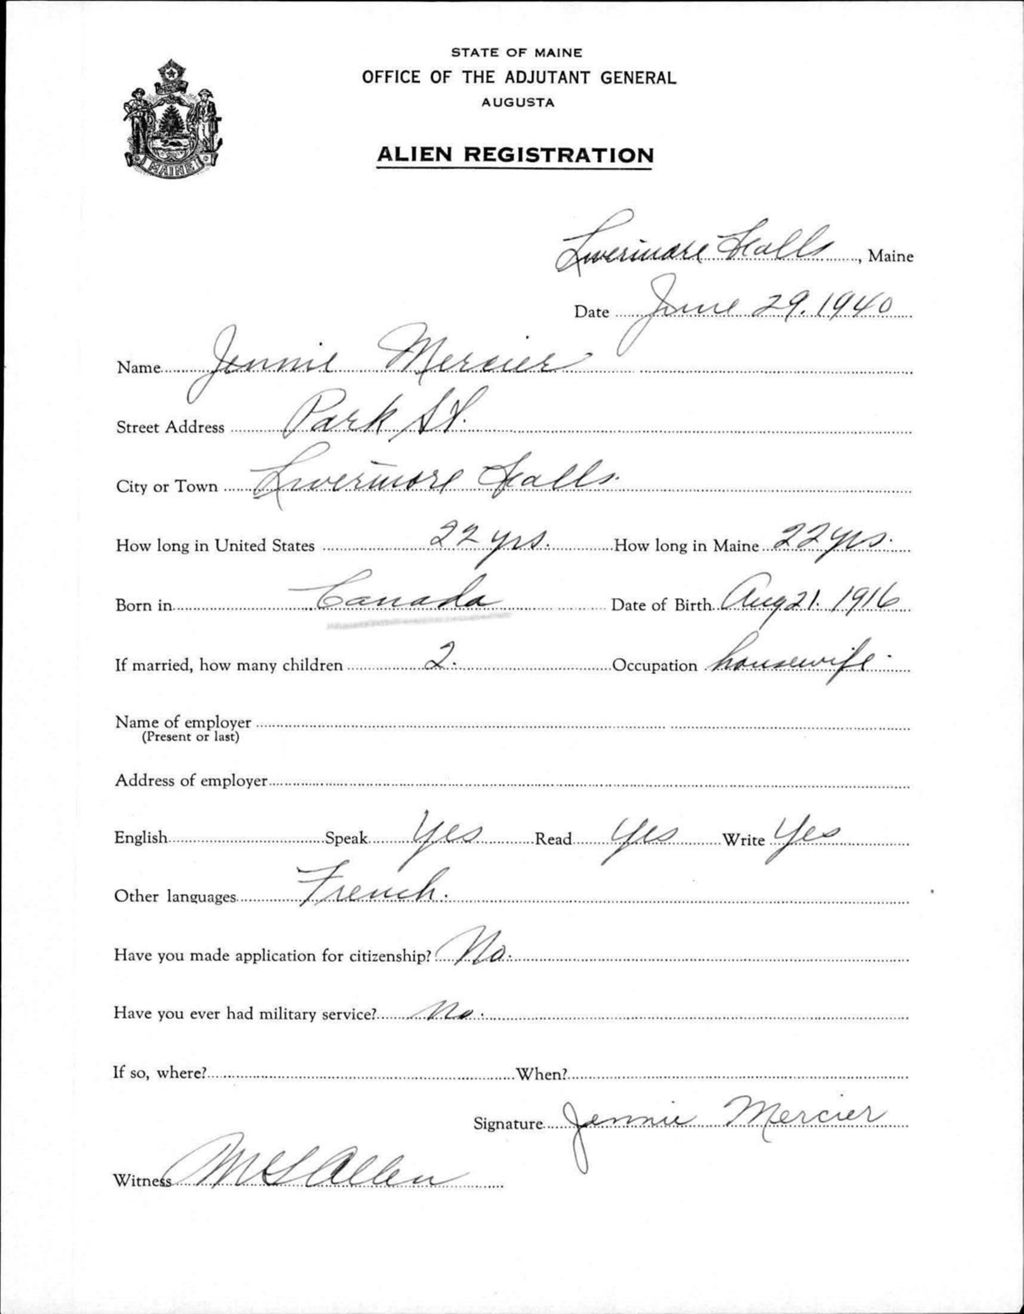 STATE OF MAINE
OFFICE OF THE ADJUTANT GENERAL
AUGUSTA
ALIEN REGISTRATION
MAINE
Livermore Falls, Maine
Date June 29. 1940
Name Jennie Mercier
Street Address Park St.
City or Town Livermore Falls.
How long in United States 22 yrs. How long in Maine 22 yrs.
Born in Canada Date of Birth Aug 21. 1916
If married, how many children 2. Occupation housewife.
Name of employer
(Present or last)
Address of employer
English Speak Yes Read Yes Write Yes
Other languages French.
Have you made application for citizenship? No.
Have you ever had military service? No.
If so, where? When?
Signature Jennie Mercier
Witness M S Allen